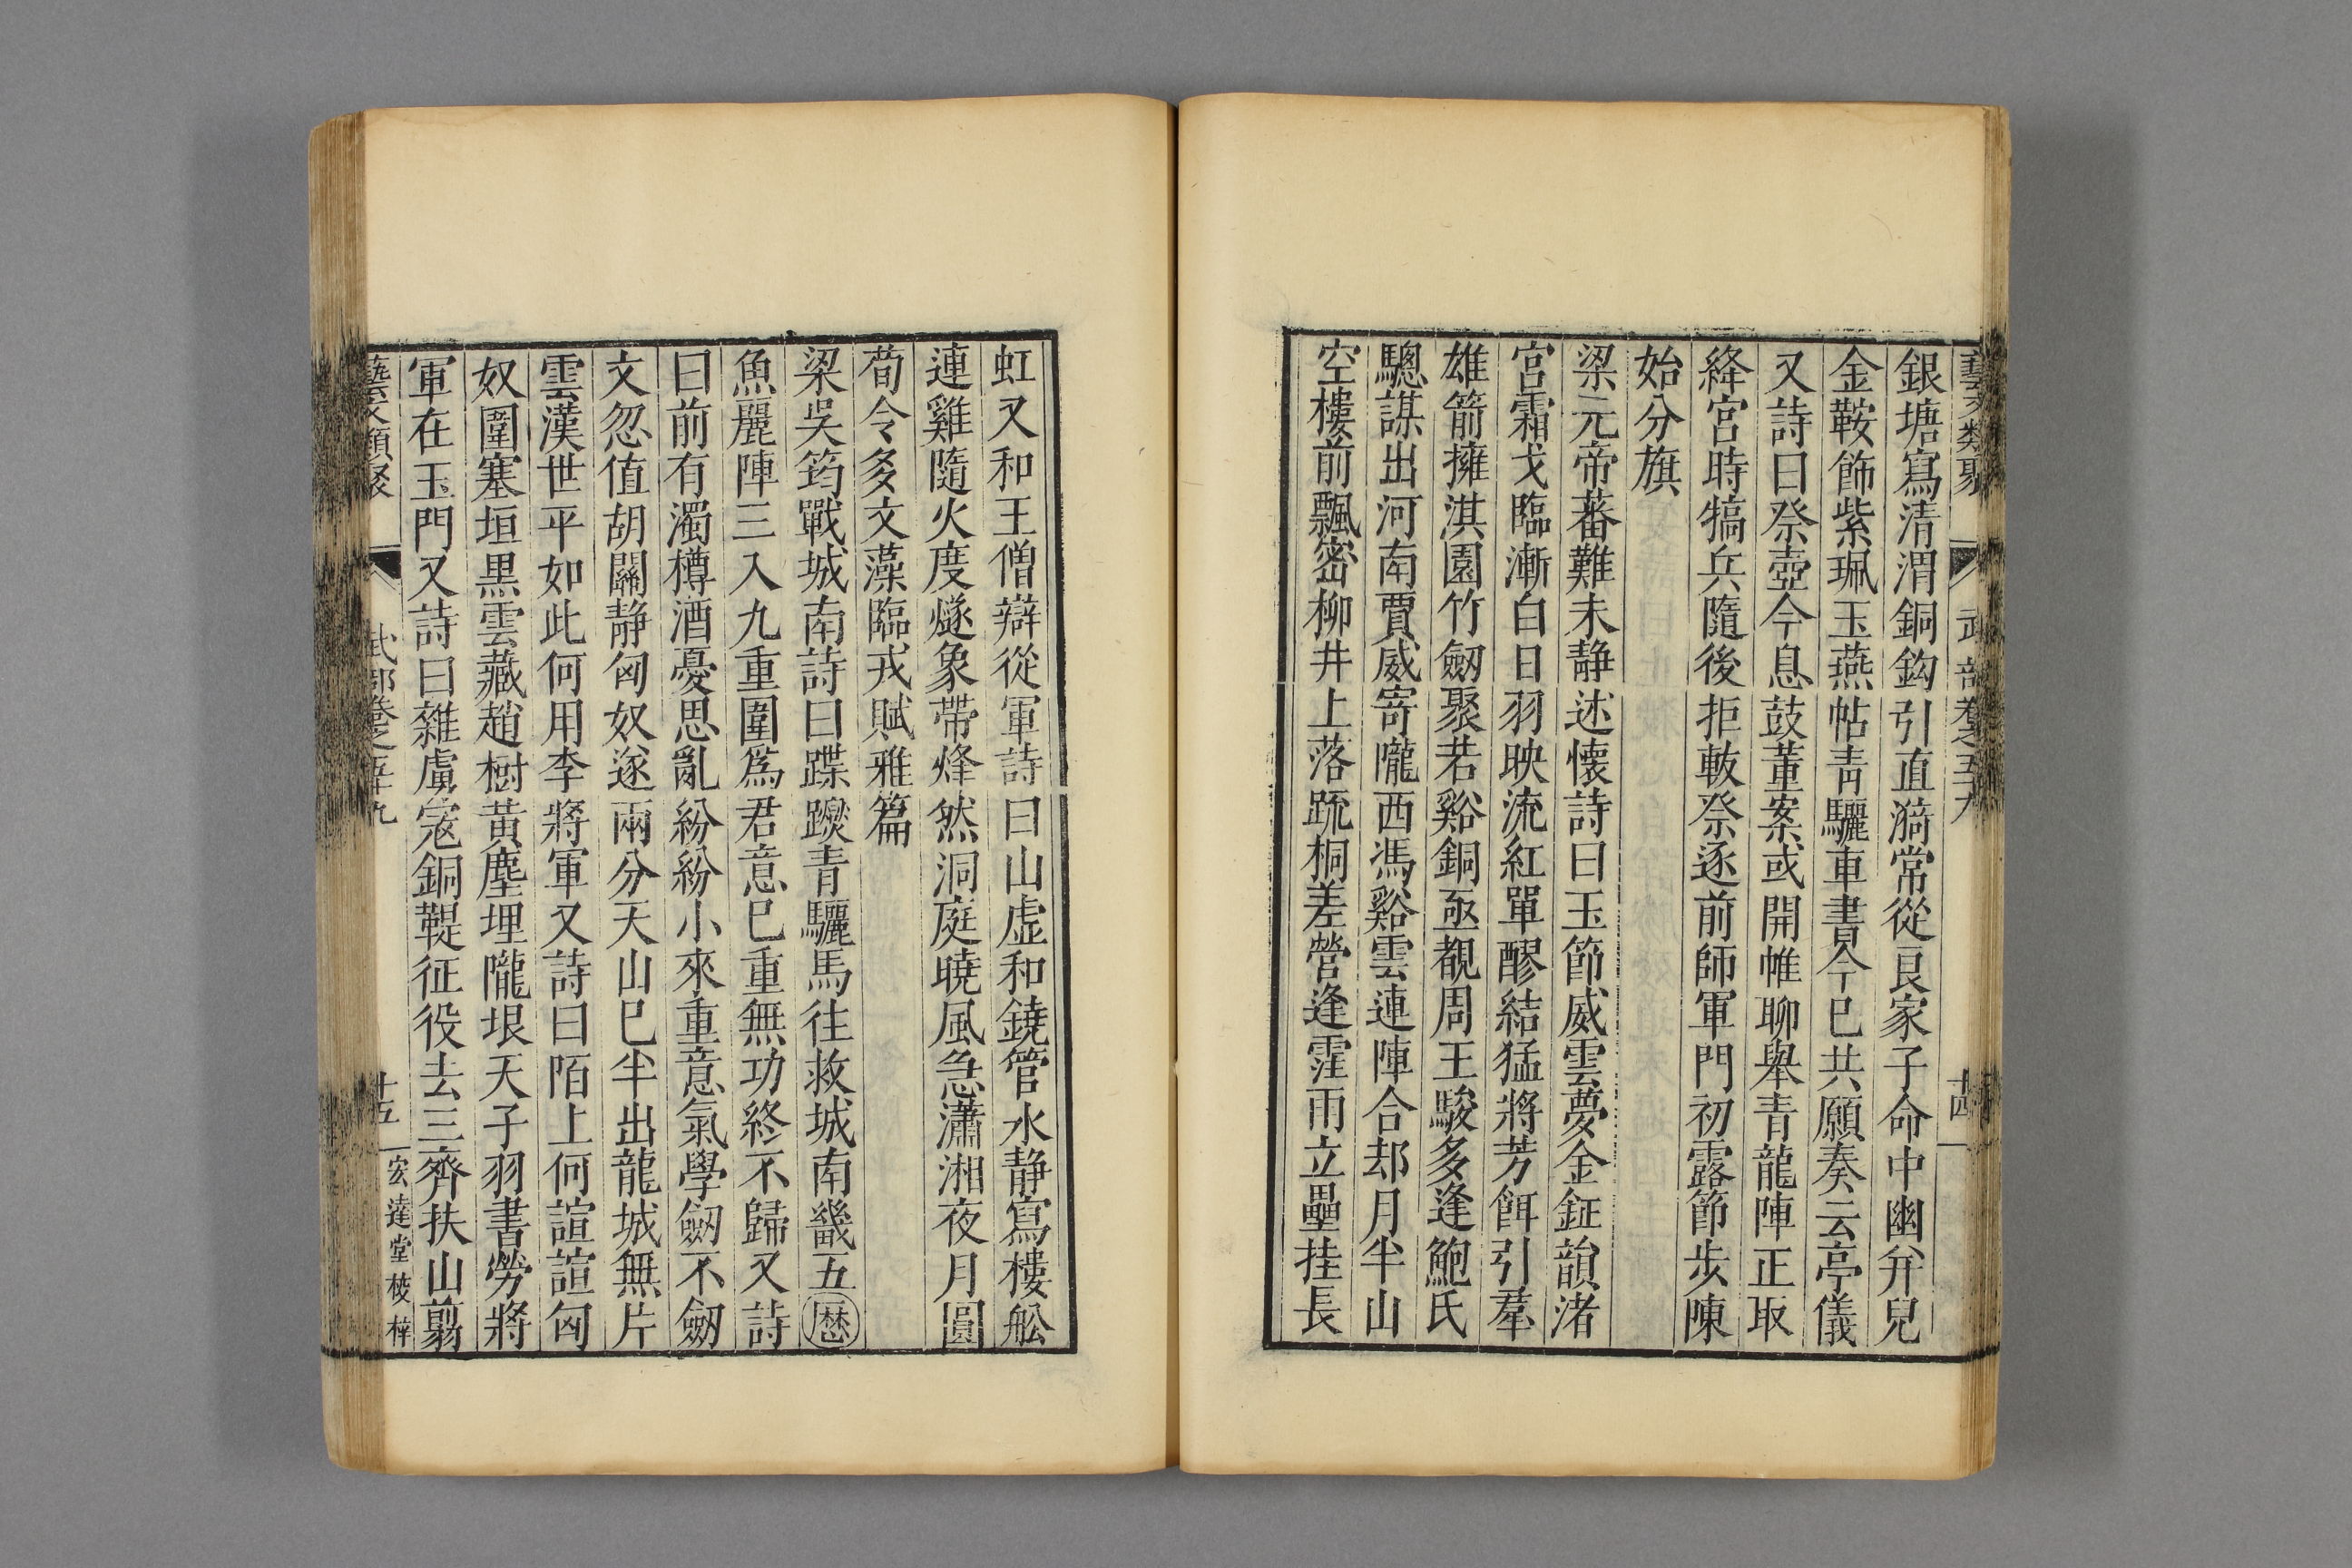 藝文類聚 武部卷之五十九 十四
銀塘寫清渭銅鈎引直漪常從良家子命中幽并兒
金鞍飾紫珮玉燕帖青驪車書今巳共願奏云亭儀
又詩曰祭壺今息鼓董案或開帷聊舉青龍陣正取
絳宮時犒兵隨後拒軷祭逐前師軍門初露節步陳
始分旗
梁元帝蕃難未静述懷詩曰玉節威雲夢金鉦韻渚
宮霜戈臨漸白日羽映流紅單醪結猛將芳餌引羣
雄箭擁淇園竹劒聚若谿銅亟覩周王駿多逢鮑氏
驄謀出河南賈威寄隴西馮谿雲連陣合却月半山
空樓前飄密柳井上落疏桐差營逢霪雨立壘挂長
虹又和王僧辯從軍詩曰山虚和鐃管水静寫樓舩
連雞隨火度燧象帶烽然洞庭曉風急瀟湘夜月圓
荀令多文藻臨戎賦雅篇
梁吳筠戰城南詩曰蹀躞青驪馬往救城南畿五歷
魚麗陣三入九重圍爲君意巳重無功終不歸又詩
曰前有濁樽酒憂思亂紛紛小來重意氣學劒不劒
文忽值胡關静匈奴遂兩分天山巳半出龍城無片
雲漢世平如此何用李將軍又詩曰陌上何諠諠匈
奴圍塞垣黒雲藏趙樹黃塵埋隴垠天子羽書勞將
軍在玉門又詩曰雜虜寇銅鞮征役去三齊扶山翦
藝文類聚 武部卷之五十九 十五 宏達堂校梓